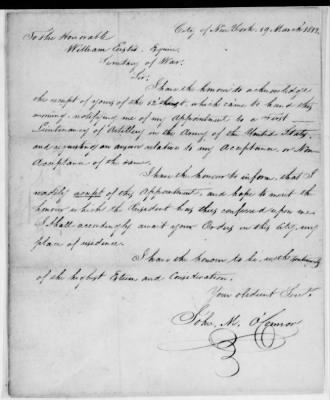 City of New York. 19 March 1812.
To The Honorable
William Eustis Esquire
Secretary of War.
Sir,
I have the honour to acknowledge
the receipt of yours of the 12th, which came to hand this
morning notifying me of my Appointment to a First
Lieutenancy of Artillery in the Army of the United States,
and requesting an answer relative to my Acceptance or Non
Acceptance of the same.
I have the honour to inform, that I
readily accept of this Appointment, and hope to merit the
honour which the President has thus conferred upon me.
I shall accordingly await your Orders in this City, my
place of residence.
I have the honour to be, with sentiments
of the highest Esteem and Consideration.
Your obedient Servt.
John M. O'Connor